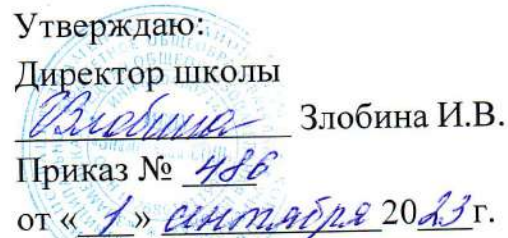 Утверждаю:
Директор школы
Злобина Злобина И.В.
Приказ № 486
от «1» сентября 2023г.